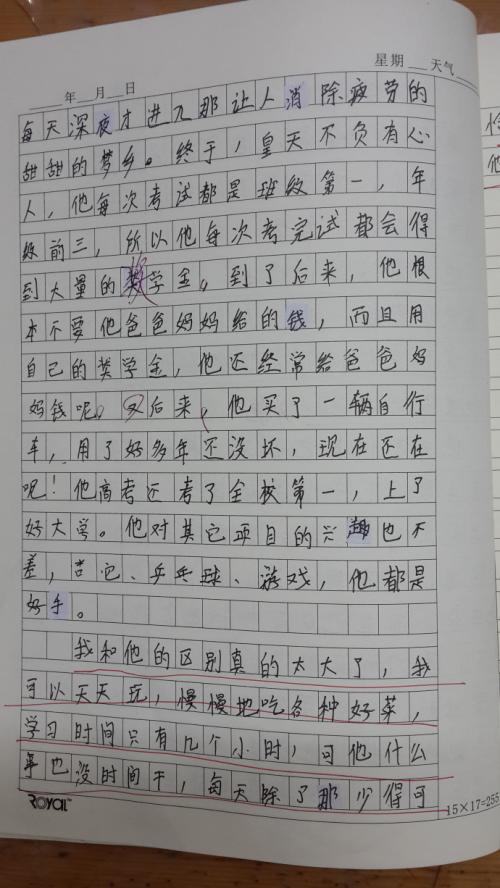 年 月 日
星期 天气
每天深夜才进入那让人消除疲劳的
甜甜的梦乡。终于,皇天不负有心
人,他每次考试都是班级第一,年
级前三,所以他每次考完试都会得
到大量的奖学金。到了后来,他根
本不要他爸爸妈妈给的钱,而且用
自己的奖学金,他还经常给爸爸妈
妈钱呢。又后来,他买了一辆自行
车,用了好多年还没坏,现在还在
呢!他高考还考了全校第一,上了
好大学。他对其它项目的兴趣也不
差,吉它、乒乓球、游戏,他都是
好手。
我和他的区别真的太大了,我
可以天天玩,慢慢地吃各种好菜,
学习时间只有几个小时,可他什么
也没时间干,每天除了那少得可
ROYAL
15×17=255